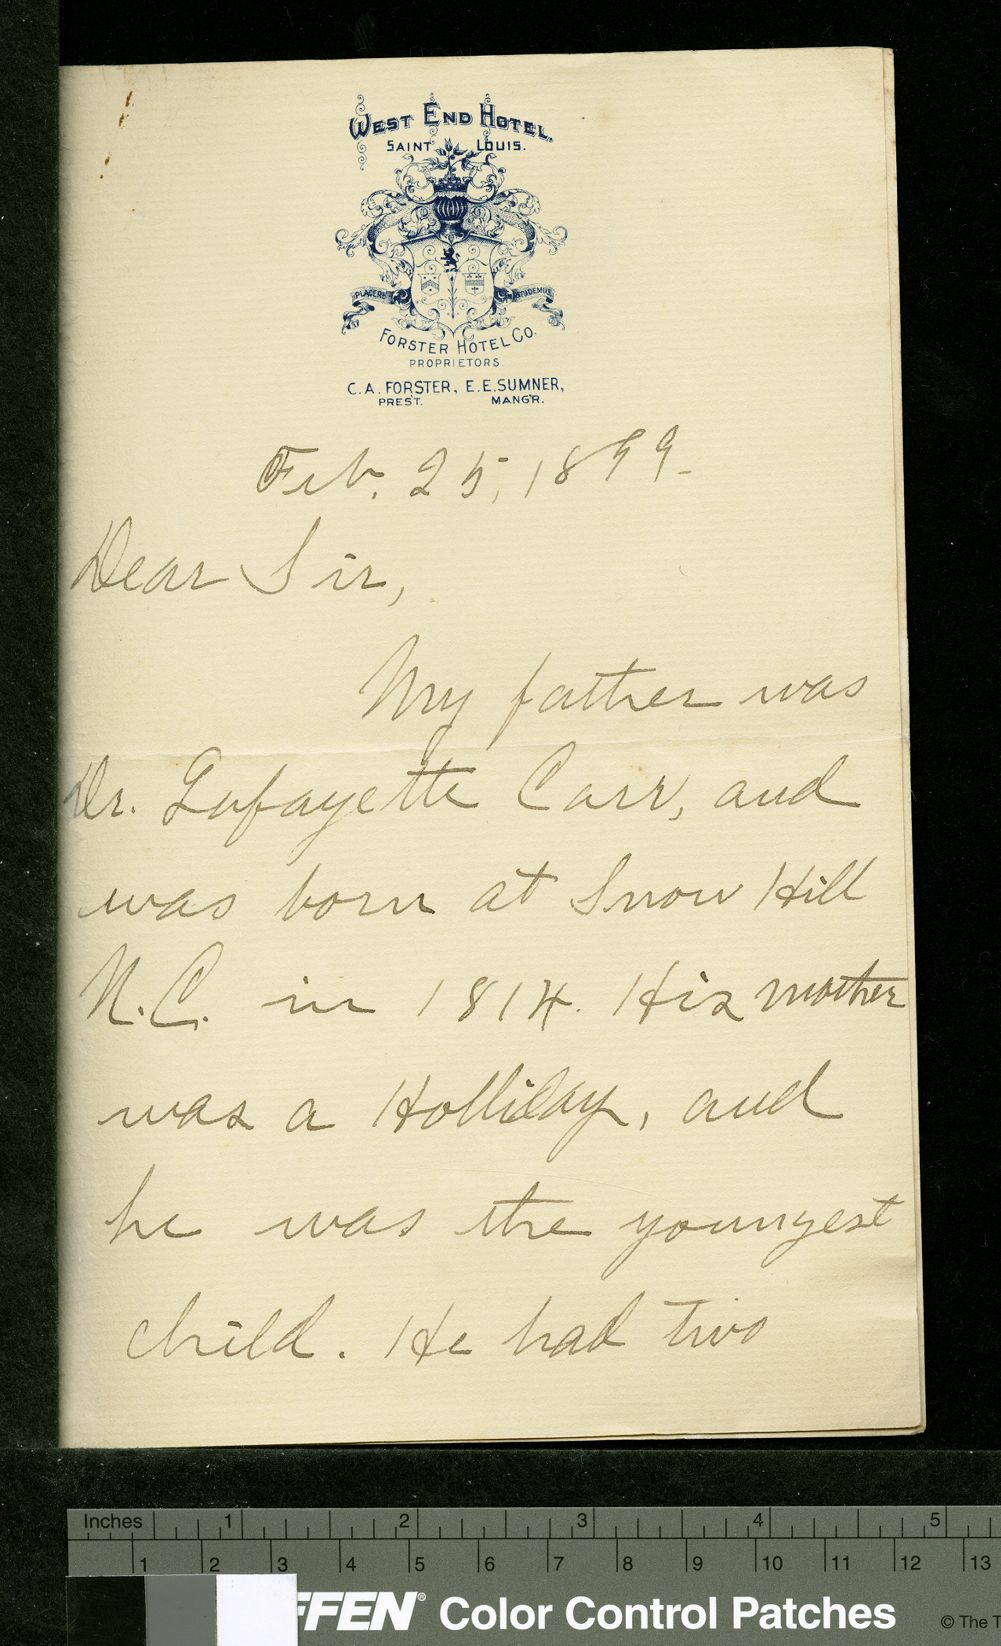 WEST END HOTEL.
SAINT LOUIS.
PLACERE STUDEMUS
FORSTER HOTEL CO.
PROPRIETORS
C. A. FORSTER, E. E. SUMNER,
PREST. MANG'R.
Feb. 25, 1899-
Dear Sir,
My father was
Dr. Lafayette Carr, and
was born at Snow Hill
N.C. in 1814. His mother
was a Holliday, and
he was the youngest
child. He had two
Inches 1 2 3 4 5
1 2 3 4 5 6 7 8 9 10 11 12 13
FFEN® Color Control Patches © The T